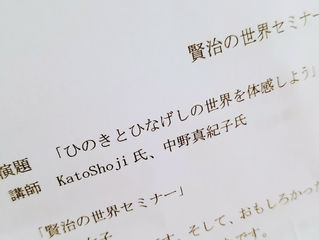 賢治の世界セミナー
演題 「ひのきとひなげしの世界を体感しよう」
講師 KatoShoji 氏、中野真紀子氏
「賢治の世界セミナー」
す。そして、おもしろかった
です。